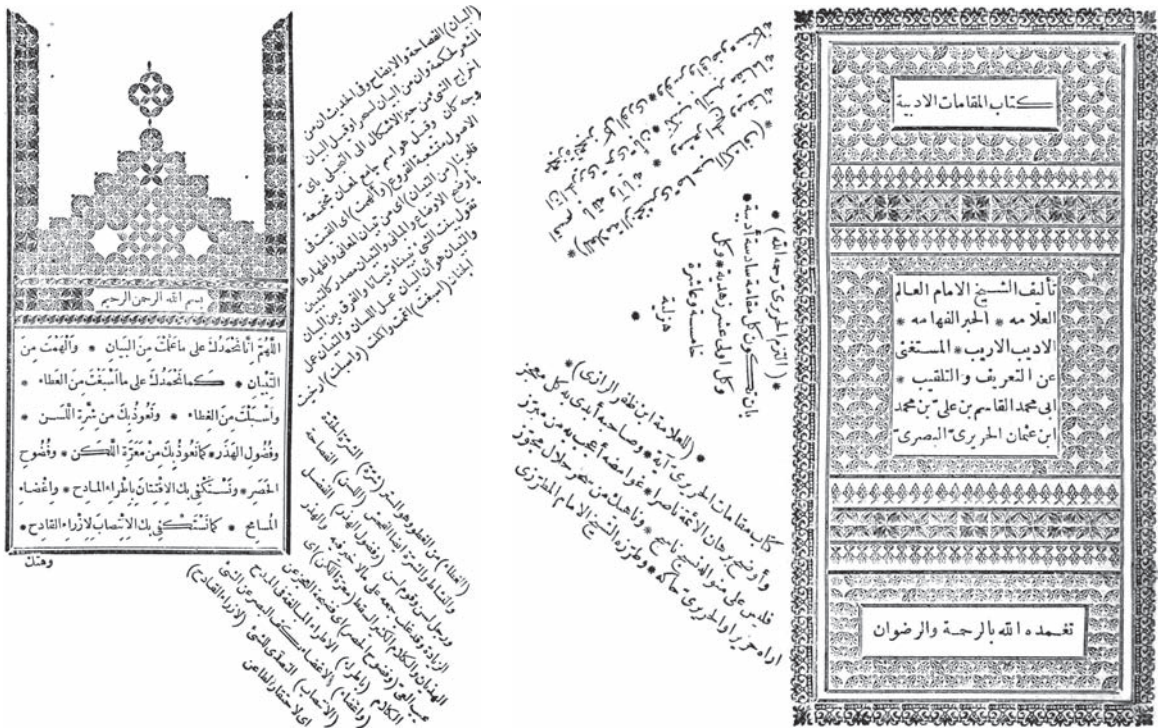 كتاب المقامات الادبية
تأليف الشيخ الامام العالم
العلامه * الحبر الفهامه *
الاديب الاريب * المستغنى
عن التعريف والتلقيب *
ابى محمد القاسم بن على بن محمد
ابن عثمان الحريرى البصرى
تغمده الله بالرحمة والرضوان
* (للعلامة الزمخشرى صاحب الكشاف) *
اقسم بالله وآياته * ومشعر الحج وميقاته
ان الحريرى حرى بأن * نكتب بالتبر مقاماته
معجزة تعجز كل الورى * ولو سروا فى ضوء مشكاته
* (التزم الحريرى رحمه الله) *
بان تكون كل مقامة سادسة أدبية *
وكل اولى عشر زهدية * وكل
خامسة وعاشرة
هزلية
*
* (للعلامة ابن ظفر الرازى) *
كتاب مقامات الحريرى آية * وصاحبه أبدى به كل معجز
وأوضح برهان الائمة ناصرا * غوامضه أعجب به من مبرز
فليس على منواله نسج ناسج * وناهيك من سحر حلال مجوّز
اراه حريرا والحريرى حاكه * وطرزه الشيخ الامام المطرزى
بسم الله الرحمن الرحيم
اللّهُمّ إنّا نَحْمَدُكَ على ما عَلَّمْتَ مِنَ البَيانِ * وأَلْهَمْتَ مِنَ
التِّبْيانِ * كما نَحْمَدُكَ على ما أَسْبَغْتَ مِنَ العَطاء *
وأَسْبَلْتَ مِنَ الغِطاء * ونَعُوذُ بِكَ مِن شِرَّةِ اللَّسَنِ *
وفُضُولِ الهَذَرِ * كما نَعُوذُ بِكَ مِنْ مَعَرَّةِ اللَّكَنِ * وفُضُوحِ
الحَصَرِ * ونَسْتَكْفِى بِكَ الافْتِتانَ بِإطْراءِ المادِحِ * وإغْضاءِ
المُسامِحِ * كما نَسْتَكْفِى بِكَ الانْتِصابَ لإزْراءِ القادِحِ *
وهتك
(البيان) الفصاحة والايضاح وفى الحديث ان من
الشعر لحكمة وان من البيان لسحرا وقيل البيان
اخراج الشئ من حيز الاشكال الى التجلى بأى
وجه كان وقيل هو اسم جامع لمعان مجتمعة
الاصول متشعبة الفروع (وألهمت) اى القيت فى
قلوبنا (من التبيان) اى من تبيان المعانى واظهارها
بأوضح الاوضاع والمبانى والتبيان مصدر كالتبيين
تقول بينت الشئ تبيينا وتبيانا والفرق بين البيان
والتبيان هو أن البيان عمل اللسان والتبيان عمل
الجنان (اسبغت) اتممت واكملت (واسبلت) ارخيت
(الغطاء) من الغطو وهو الستر (شرة) الشرة الحدة
والنشاط والشرة ايضا الفحش (اللسن) الفصاحة
ورجل لسن وقوم لسن (وفضول الهذر) الفضل
الزيادة وقد غلب جمعه على مالا خير فيه والهذر
الهذيان والكلام الكثير السقط (معرة اللكن) اى
عيب العى (وفضوح الحصر) اى فضيحة العجز عن
الكلام (باطراء) الاطراء المبالغة فى المدح
(واغضاء) الاغضاء كف البصر عن الشئ
(الانتصاب) التصدى للشئ (لازراء القادح)
اى لاحتقار الطاعن